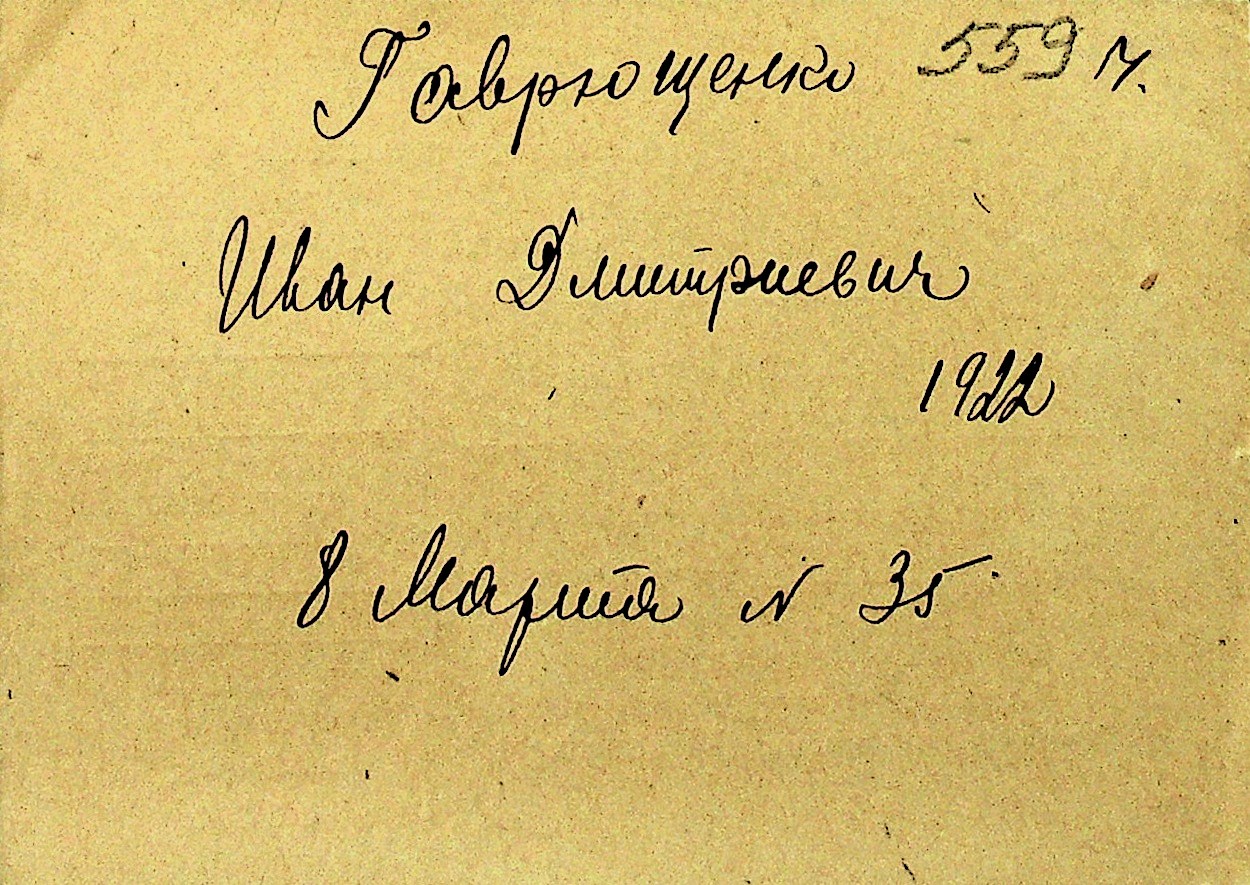 Гаврющенко 559 ч.
Иван Дмитриевич
1922
8 Марта N 35